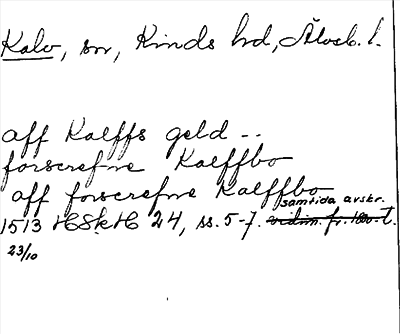 Kalv, sn, Kinds hd, Älvsb. l.
aff Kalffs geld --
forscrefne Kalffbo
aff forscrefne Kalffbo
samtida avskr.
1513 HSkH 24, ss. 5-7. vidim. fr. 1600-t.
23/10